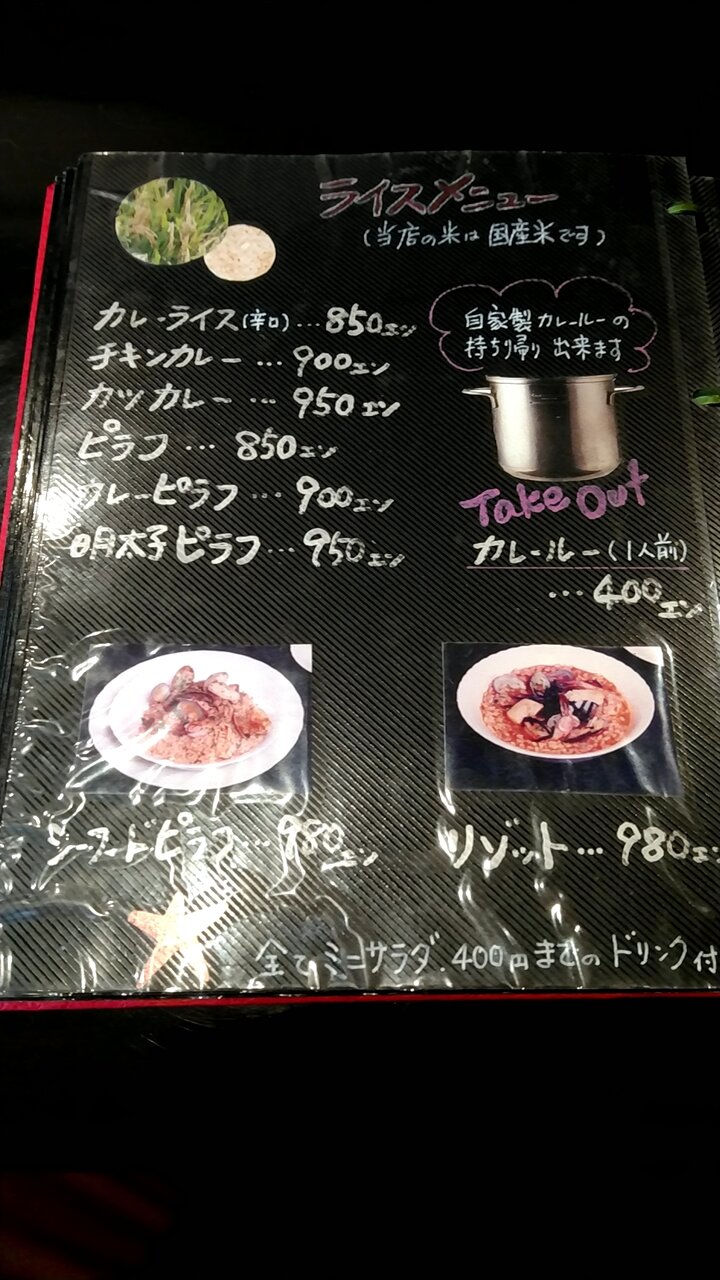 ライスメニュー
(当店の米は国産米です)
カレーライス(辛口)…850エン
チキンカレー…900エン
カツカレー…950エン
ピラフ…850エン
カレーピラフ…900エン
明太子ピラフ…950エン
自家製カレールーの
持ち帰り出来ます
Take Out
カレールー(1人前)
…400エン
シーフードピラフ…980エン
リゾット…980エン
全てミニサラダ.400円までのドリンク付